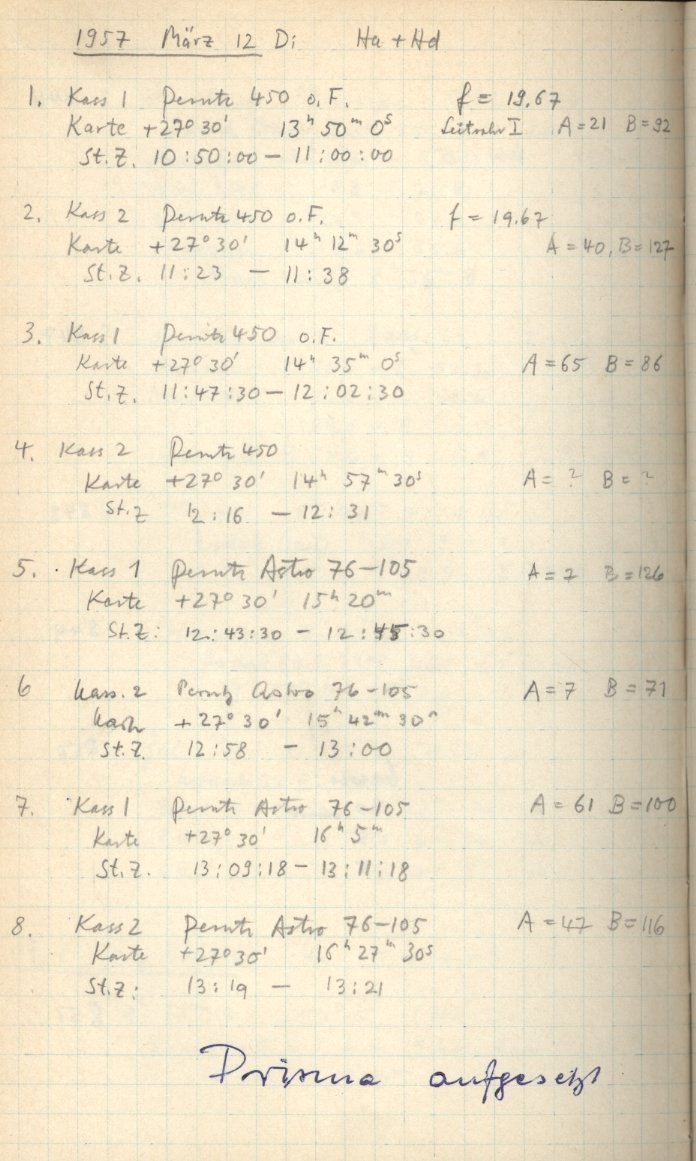 1957 März 12 Di Ha + Hd
1. Kass 1 Perutz 450 o.F. f = 19.67
Karte +27° 30' 13ʰ 50ᵐ 0ˢ Leitrohr I A = 21 B = 92
St.Z. 10:50:00 – 11:00:00
2. Kass 2 Perutz 450 o.F. f = 19.67
Karte +27° 30' 14ʰ 12ᵐ 30ˢ A = 40, B = 127
St.Z. 11:23 – 11:38
3. Kass 1 Perutz 450 o.F.
Karte +27° 30' 14ʰ 35ᵐ 0ˢ A = 65 B = 86
St.Z. 11:47:30 – 12:02:30
4. Kass 2 Perutz 450
Karte +27° 30' 14ʰ 57ᵐ 30ˢ A = ? B = ?
St.Z 12:16 – 12:31
5. Kass 1 Perutz Astro 76–105 A = 7 B = 126
Karte +27° 30' 15ʰ 20ᵐ
St.Z: 12:43:30 – 12:45:30
6 Kass. 2 Perutz Astro 76–105 A = 7 B = 71
Karte +27° 30' 15ʰ 42ᵐ 30ˢ
St.Z. 12:58 – 13:00
7. Kass 1 Perutz Astro 76–105 A = 61 B = 100
Karte +27° 30' 16ʰ 5ᵐ
St.Z. 13:09:18 – 13:11:18
8. Kass 2 Perutz Astro 76–105 A = 47 B = 116
Karte +27° 30' 16ʰ 27ᵐ 30ˢ
St.Z: 13:19 – 13:21
Prisma aufgesetzt